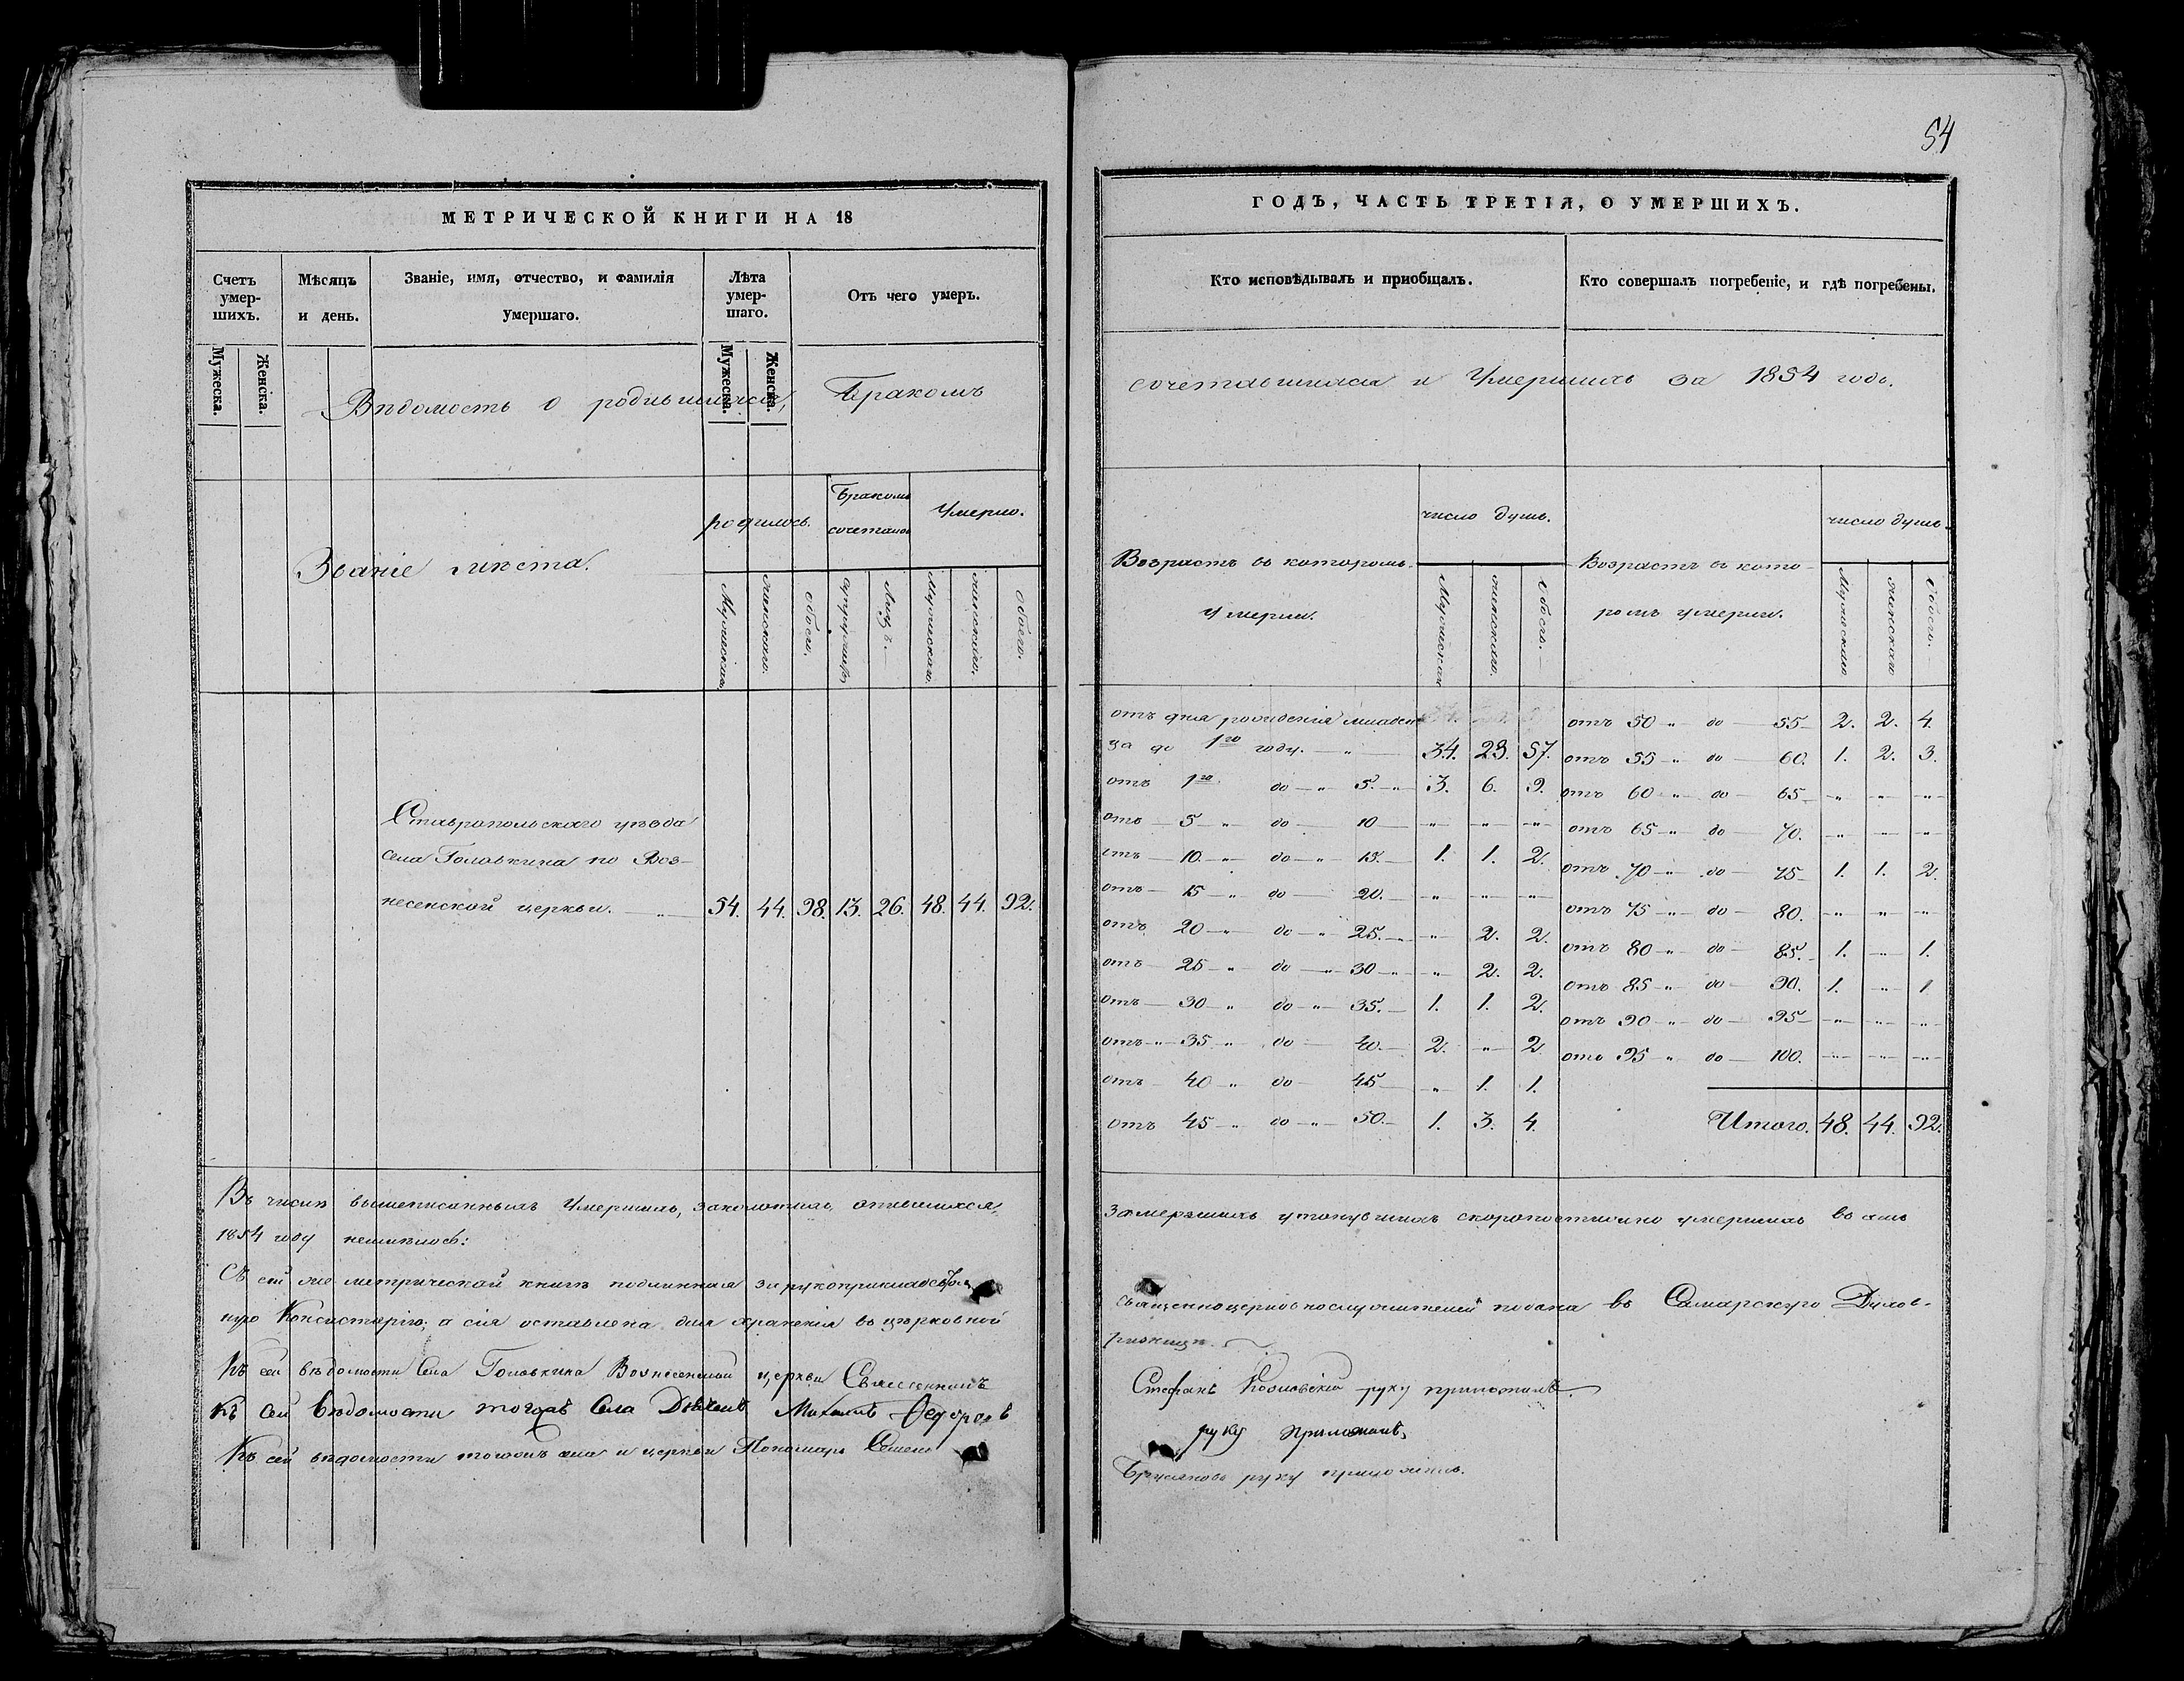 54
МЕТРИЧЕСКОЙ КНИГИ НА 18
Счетъ умер-шихъ.
Мужеска.
Женска.
Мѣсяцъ и день.
Званіе, имя, отчество, и фамилія умершаго.
Лѣта умер-шаго.
Мужеска.
Женска.
Отъ чего умеръ.
Вѣдомость о родившихся, Бракомъ
Званіе мѣста.
родилось.
Бракомъ сочеталось
Умерло.
Мужескаго.
женскаго.
обоего.
супружествъ
Лицъ.
Мужескаго.
женскаго.
обоего.
Ставропольскаго уѣзда
села Головкина по Воз-
несенской церкви. 54. 44. 98. 13. 26. 48. 44. 92.
Въ числѣ вышеписанныхъ Умершихъ, опившихся,
1854 году неимѣлось:
Съ сей же метрической книги подлинная за рукоприкладствомъ
ную Консисторію; а сія оставлена для храненія въ церковной
Къ сей вѣдомости Села Головкина Вознесенской церкви Священникъ
Къ сей вѣдомости тогожъ Села Діаконъ Михаилъ Федоровъ
Къ сей вѣдомости тогожъ села и церкви Пономарь Семенъ
ГОДЪ, ЧАСТЬ ТРЕТІЯ, О УМЕРШИХЪ.
Кто исповѣдывалъ и пріобщалъ.
Кто совершалъ погребеніе, и гдѣ погребены.
сочетавшихся и Умершихъ за 1854 годъ.
Возрастъ въ которомъ
Умерли.
число душъ.
Мужескаго
женскаго.
Обоего.
Возрастъ въ кото-
ромъ умерли.
число душъ.
Мужескаго
женскаго
Обоего.
отъ дня рожденія младен
ца до 1го году. 34. 23. 57.
отъ 1го до 5. 3. 6. 9.
отъ 5 до 10 " " "
отъ 10. до 15. 1. 1. 2.
отъ 15 до 20. " " "
отъ 20 до 25. " 2. 2.
отъ 25 до 30 " 2. 2.
отъ 30 до 35. 1. 1. 2.
отъ 35 до 40. 2. " 2
отъ 40 до 45 " 1. 1.
отъ 45 до 50. 1. 3. 4.
отъ 50 до 55 2. 2. 4.
отъ 55 до 60. 1. 2. 3.
отъ 60 до 65 " " "
отъ 65 до 70. " " "
отъ 70 до 75 1. 1. 2.
отъ 75 до 80. " " "
отъ 80 до 85. 1. " 1.
отъ 85 до 90. 1. " 1
отъ 90 до 95 " " "
отъ 95 до 100. " " "
Итого. 48. 44. 92.
замерзшихъ утонувшихъ скоропостижно умершихъ въ семъ
священноцерковнослужителей подана въ Самарскую Духов-
ризницѣ.
Стефанъ руку приложилъ.
руку приложилъ.
руку приложилъ.